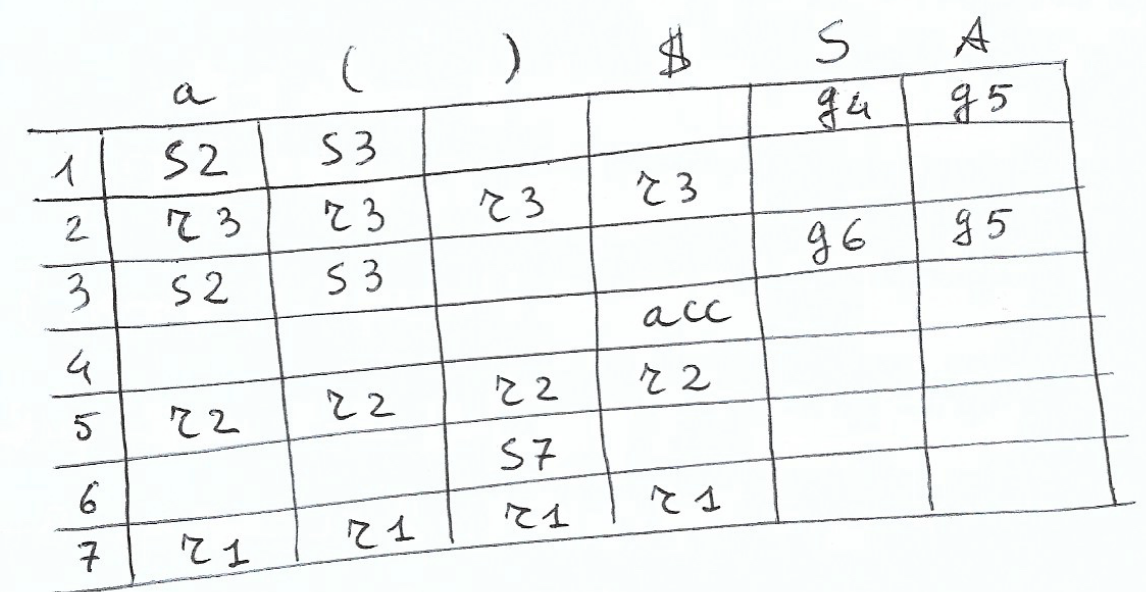 a ( ) $ S A
1 s2 s3 g4 g5
2 r3 r3 r3 r3
3 s2 s3 g6 g5
4 acc
5 r2 r2 r2 r2
6 s7
7 r1 r1 r1 r1